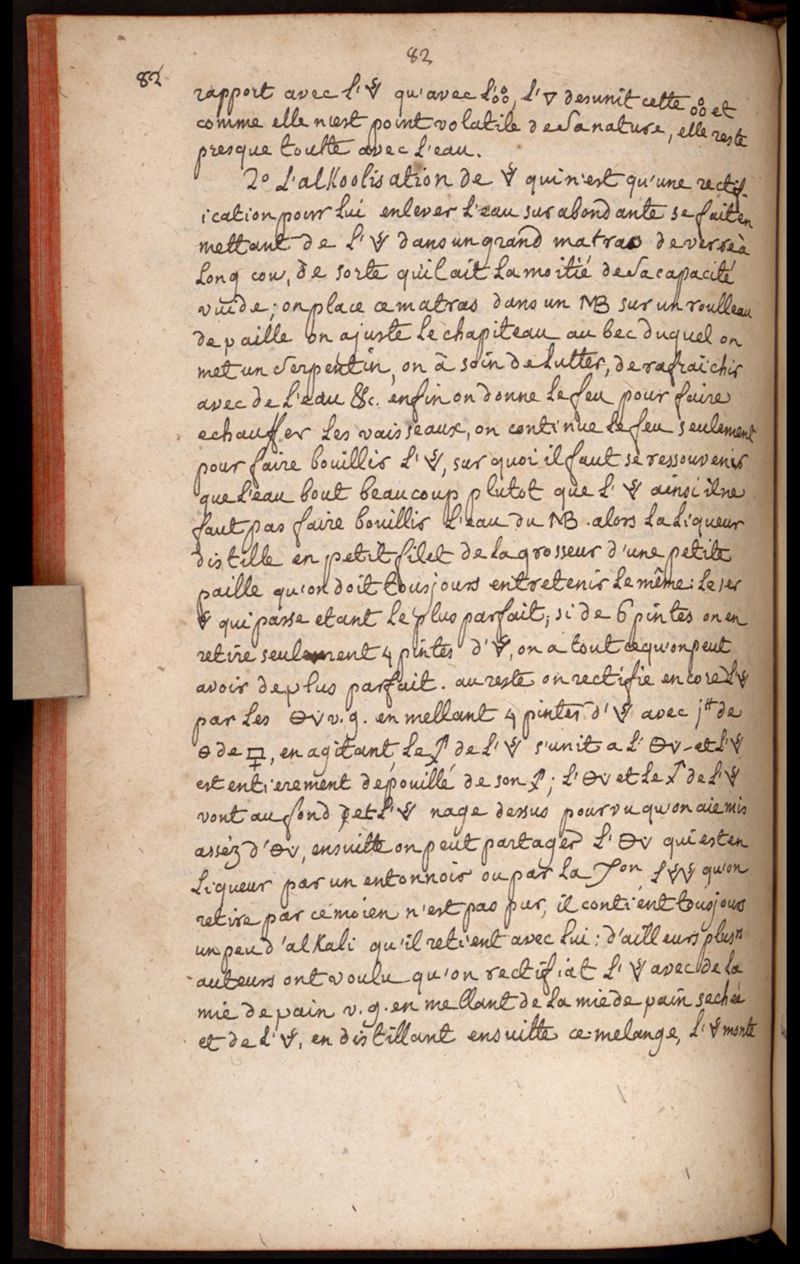 82
82
rapport avec l'🜈 qu'avec l'🝆, l'🜄 desunit cette 🝆 et
comme elle n'est point volatile de sa nature, elle reste
presque toutte avec l'eau.
2° L'alkoolisation de 🜈 qui n'est qu'une rectif-
ication pour lui enlever l'eau surabondante se fait en
mettant de l'🜈 dans un grand matras de verre à
long cou, de sorte qu'il ait la moitié de sa capacité
vuide; on place ce matras dans un MB sur un roulleau
de paille on ajuste le chapiteau au bec duquel on
met un serpentin, on à soin de lutter, de rafraichir
avec de l'eau &c. enfin on donne le feu pour faire
echauffer les vaisseaux, on continue le feu seulement
pour faire bouillir l'🜈, sur quoi il faut se ressouvenir
que l'eau bout beaucoup plutot que l'🜈 ainsi il ne
faut pas faire bouillir l'eau du MB. alors la liqueur
distille en petit filet de la grosseur d'une petite
paille qu'on doit tousjours entretenir le même: le 1er
🜈 qui passe etant le plus parfait; si de 6 pintes on en
retire seulement 4 pintes d'🜈, on a tout ce qu'on peut
avoir de plus parfait. au reste on rectifie encore l'🜈
par les v.g. en mettant 4 pintes d'🜈 avec j℔ de
🜔 de, en agitant le de l'🜈 s'unit a l' et l'🜈
est entierement depouillé de son; l' et le de l'🜈
vont au fond et l'🜈 nage dessus pourvu qu'on aie mis
asséz d', ensuitte on peut partager l' qui est en
liqueur par un entonnoir ou par la, l'🜈 qu'on
retire par ce moien n'est pas pur, il contient tousjours
un peu d'alkali qu'il retient avec lui: d'ailleurs plusrs
auteurs ont voulu qu'on rectifiat l'🜈 avec de la
mie de pain v.g. en mettant de la mie de pain sechée
et de l'🜈, en distillant ensuitte ce melange, l'🜈 monte